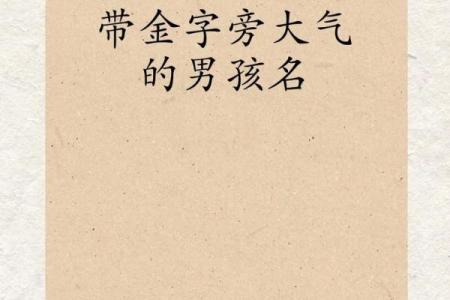 带金字旁大气
的男孩名